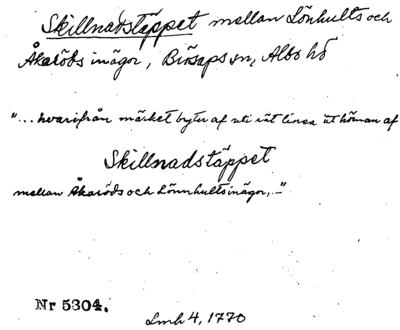 Skillnadstäppet mellan Lönhults och
Åkaröds inägor, Brösaps sn, Albo hd
"... hvarifrån märket byter af uti rät linea åt hörnan af
Skillnadstäppet
mellan Åkaröds och Lönnhults inägor, .."
Nr 5304.
Lmh 4, 1770